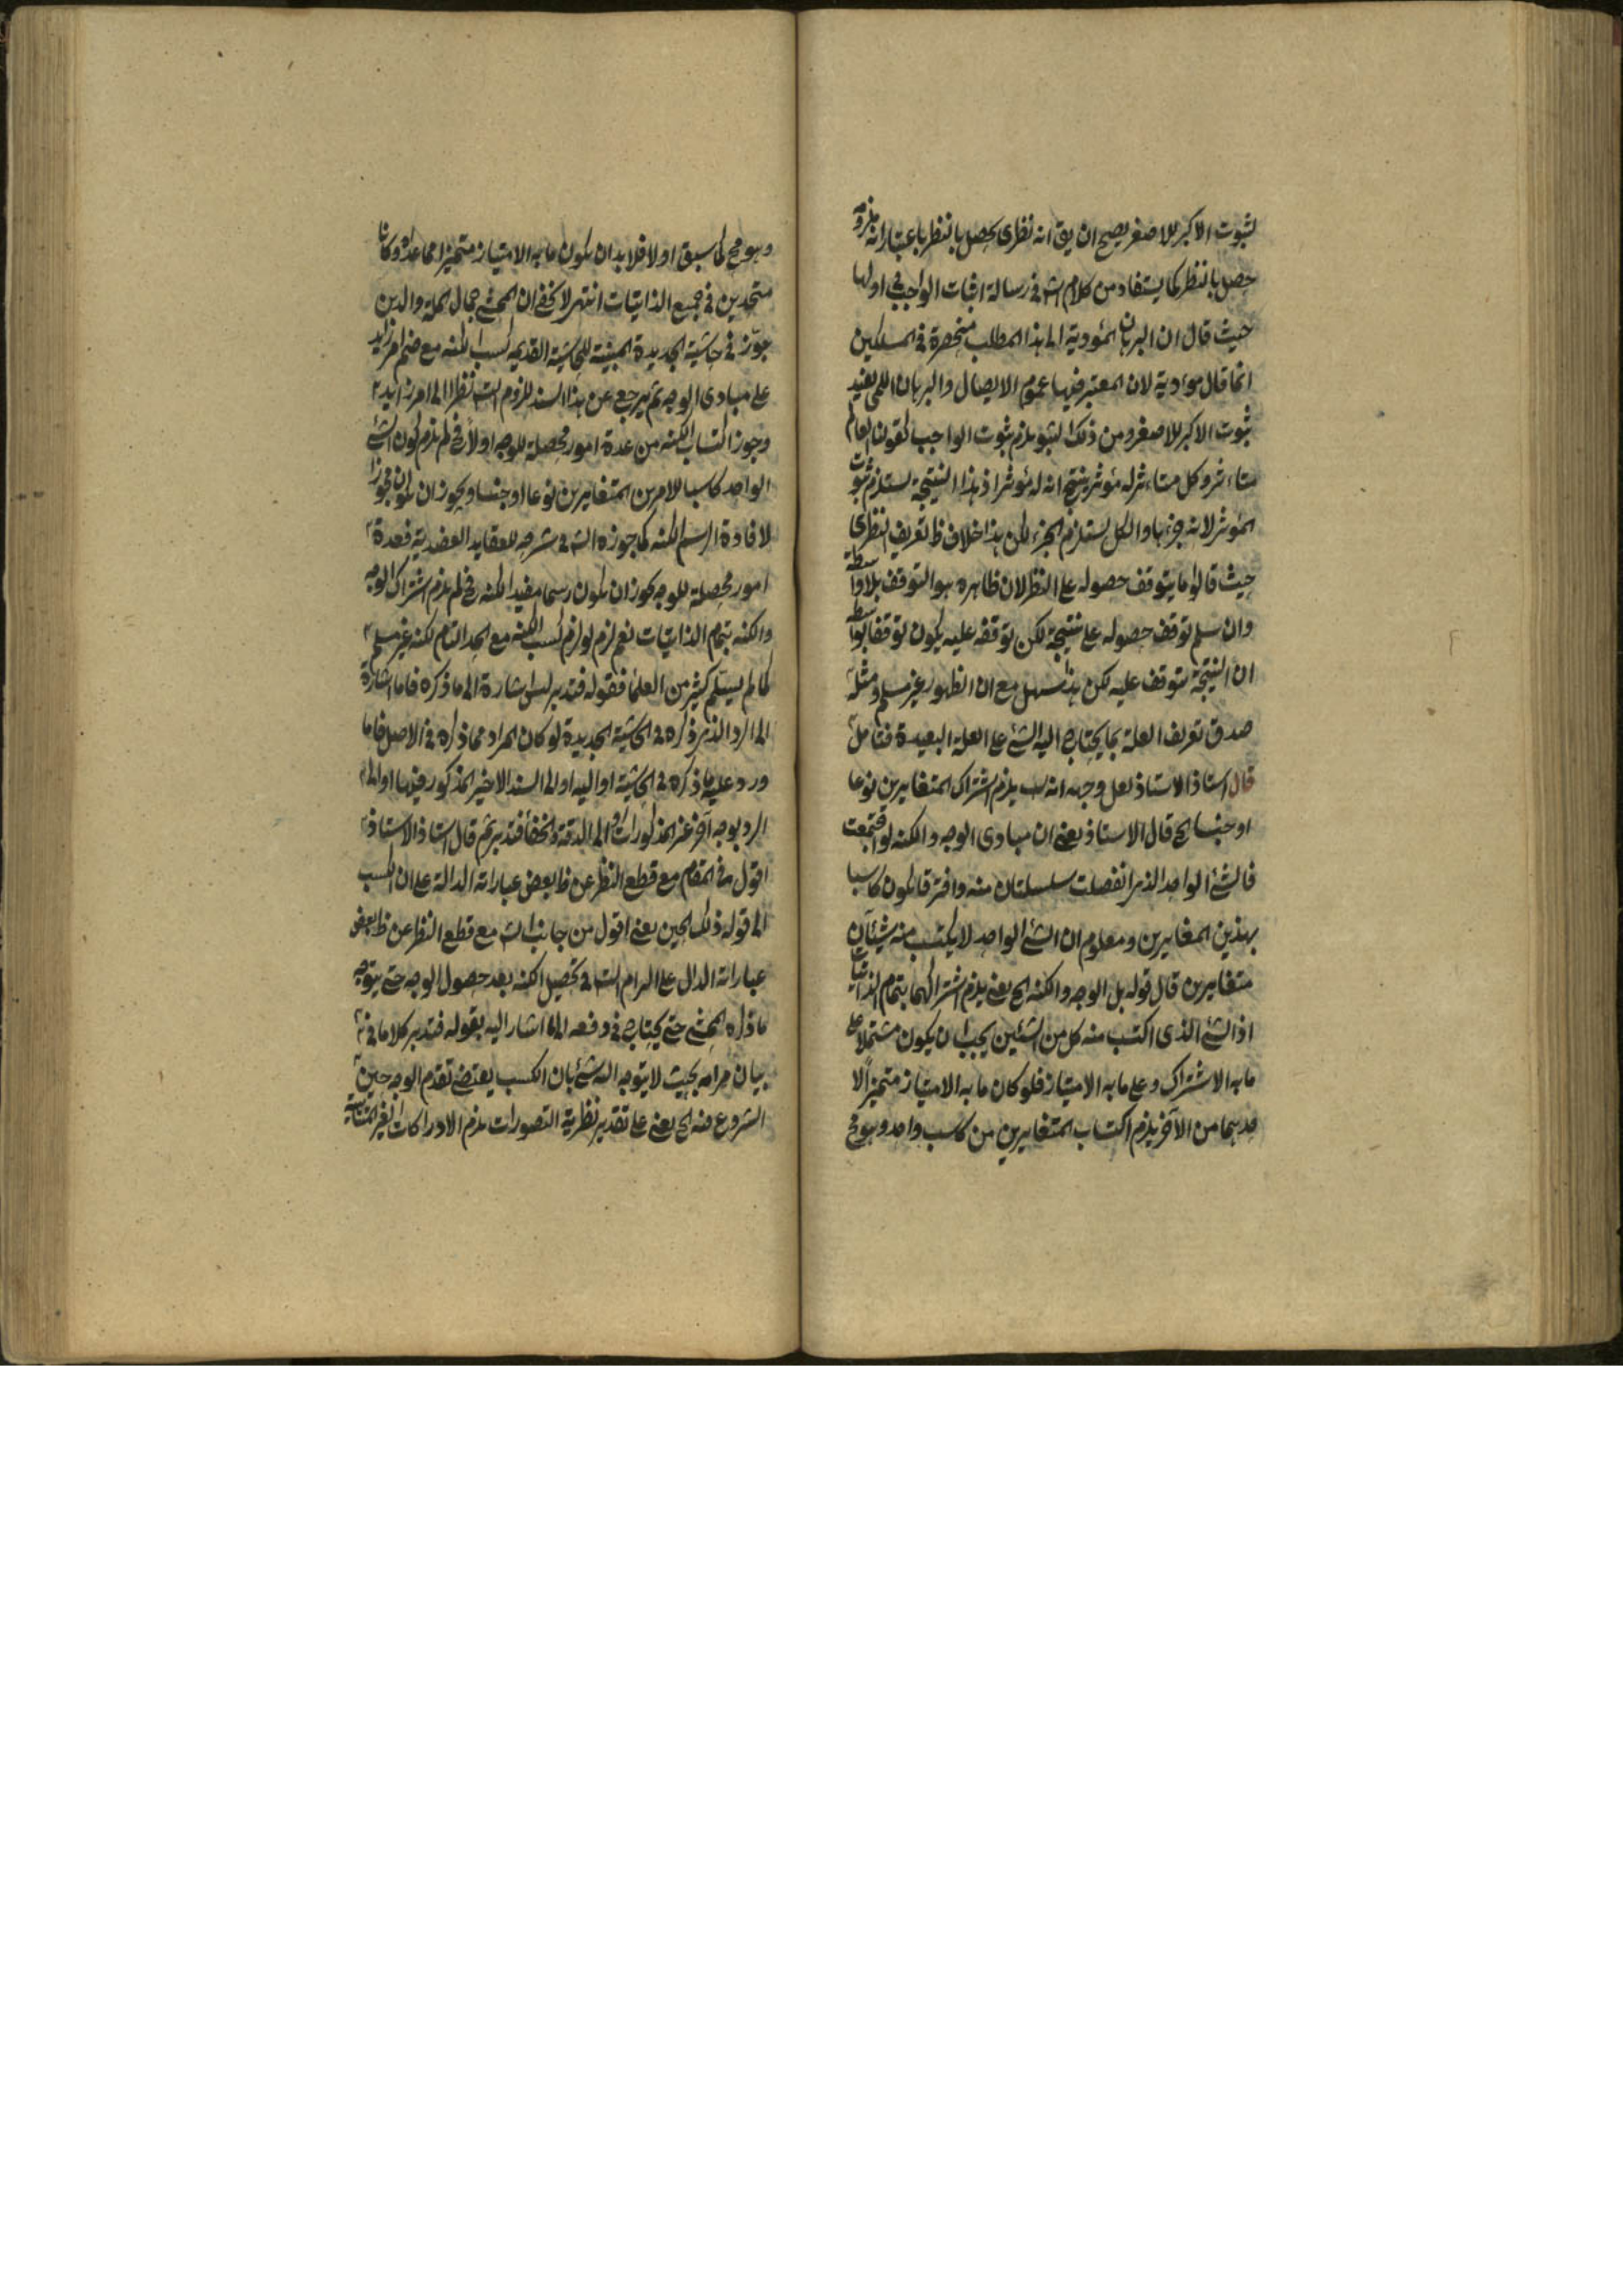 لثبوت الاكبر للاصغر يصح ان يق انه نظرى يحصل بالنظر باعتبار انه ملزومه
حصل بالنظر كما يستفاد من كلام الش فى رسالة اثبات الواجب فى اولها
حيث قال ان البرهان المؤدية الى هذا المطلب منحصرة فى المسلكين
انما قال مؤدية لان المعتبر فيها عموم الايصال والبرهان اللمى يفيد
ثبوت الاكبر للاصغر ومن ذلك الثبو يلزم ثبوت الواجب كقولنا العالم
متاثر وكل متاثر له مؤثر ينتج انه له مؤثر اذ هذا النتيجة يستلزم ثبوت
المؤثر لانه جزءها والكل يستلزم الجزء لكن هذا خلاف ظ تعريف النظرى
حيث قالوا ما يتوقف حصوله على النظر لان ظاهره هو التوقف بلا واسطة
وان سلم توقف حصوله على نتيجة لكن توقفه عليه يكون توقفا بواسطة
ان النتيجة يتوقف عليه لكن هذا سهل مع ان الظهور غير مسلم ومثله
صدق تعريف العلة بما يحتاج اليه الشئ على العلة البعيدة فتامل
قال استاذ الاستاذ لعل وجهه انه يلزم اشتراك المتغايرين نوعا
او جنسا الخ قال الاستاذ يعنى ان مبادى الوجه والكنه لو اجتمعت
فالشئ الواحد الذى انفصلت سلسلتان منه وافترقا يكون كاسبا
بهذين المغايرين ومعلوم ان الشئ الواحد لا يكتسب منه شيئان
متغايرين قال قوله بل الوجه والكنه الخ يعنى يلزم اشتراكهما بتمام الذاتيات
اذ الشئ الذى اكتسب منه كل من الشئين يجب ان يكون مشتملا على
ما به الاشتراك وعلى ما به الامتياز فلو كان ما به الامتياز متميزا لا
حدهما من الآخر يلزم اكتساب المتغايرين من كاسب واحد وهو مح
وهو مح كما سبق اولا فلا بد ان يكون ما به الامتياز متميزا مما عداه وكانا
متحدين فى جميع الذاتيات انتهى لا يخفى ان المحشى جمال الملة والدين
جوز فى حاشية الجديدة المبينة للحاشية القديمه كسب الكنه مع ضم امر زايد
على مبادى الوجه ثم يرجع عن هذا السند للزوم الش نظرا الى امر زايد
وجوز اكتساب الكنه من عدة امور محصلة للوجه اولا فح لم يلزم كون الشئ
الواحد كاسبا للامرين المتغايرين نوعا او جنسا ويجوز ان يكون مجوزا
لافادة الرسم الكنه كما جوزه الش فى شرحه للعقايد العضدية فعدة
امور محصلة للوجه يجوز ان يكون رسما مفيد الكنه فح لم يلزم اشتراك الوجه
والكنه بتمام الذاتيات نعم لزم لو لزم كسب الكنه مع الحد التام لكنه غير مسلم
كما لم يسلم كثير من العلماء فقوله فتدبر ليس اشارة الى ما ذكره فاما اشارة
الى الرد الذى ذكره فى الحاشية الجديدة لو كان المراد مما ذكره فى الاصل فاما
ورد عليه ما ذكره فى الحاشية او اليه او الى السند الاخير المذكور فيها او الى
الرد بوجه آخر غير المذكورات او الى الدقة والخفأ فتدبر ثم قال استاذ الاستاذ
اقول فى المقام مع قطع النظر عن ظ بعض عباراته الدالة على ان الكسب
الى قوله ذلك الحين يعنى اقول من جانب الش مع قطع النظر عن ظ بعض
عباراته الدال على الرام الش فى تحصيل الكنه بعد حصول الوجه حتى يتوجه
ما ذكره المحشى حتى يحتاج فى دفعه الى ما اشار اليه بقوله فتدبر كلاما فى
بيان مرامه بحيث لا يتوجه اليه شئ بان الكسب يقتضى تقدم الوجه حين
الشروع فيه الخ يعنى على تقدير نظرية التصورات يلزم الادراكات الغير المتناهية